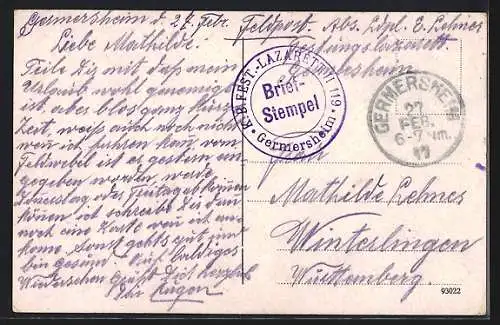 Germersheim d. 27. Febr.
Liebe Mathilde.
Teile Dir mit daß mein
Urlaub wohl genemigt
ist aber blos ganz kurze
Zeit, weiß auch noch nicht
wen ich fahren kann vom
Feldwebel ist es gestern ein
gegeben worden werde
Donnerstag oder Freitag
können ich schreibe Dir dan
noch eine Karte wen ich
kome. Sonst gehts gut und
bin gesund. Auf baldiges
Wiedersehen Grüßt Dich herzlich
Dein Eugen
Feldpost. Abs. Ldpl. E. Lehnes
Festungslazarett
Germersheim
K.B. FEST.-LAZARETT 119.
Brief-
Stempel
Germersheim
GERMERSHEIM
27
FEB.
6-7 Vm.
17
Mathilde Lehnes
Winterlingen
Württemberg.
93022